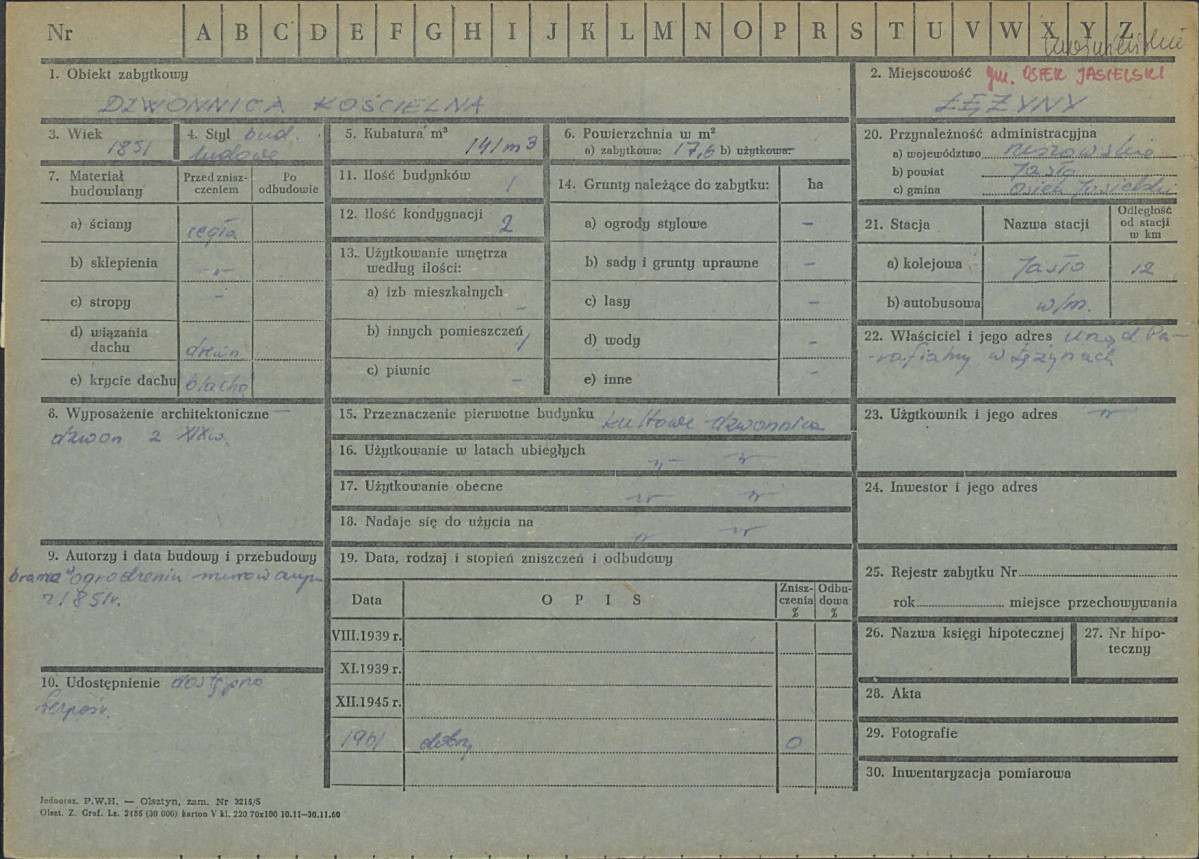 Nr A B C D E F G H I J K L M N O P R S T U V W X Y Z
1. Obiekt zabytkowy
DZWONNICA KOŚCIELNA
2. Miejscowość gm. OSIEK JASIELSKI
ŁĘŻYNY
3. Wiek
1851
4. Styl bud.
ludowe
5. Kubatura m³
141 m3
6. Powierzchnia w m²
a) zabytkowa: 17,6 b) użytkowa:
7. Materiał budowlany
Przed zniszczeniem
Po odbudowie
a) ściany cegła
b) sklepienia -„-
c) stropy -
d) wiązania dachu drewn.
e) krycie dachu blacha
8. Wyposażenie architektoniczne -
dzwon z XIX w.
9. Autorzy i data budowy i przebudowy
brama w ogrodzeniu murowanym
z 1851r.
10. Udostępnienie dostępna
bezpośr.
11. Ilość budynków 1
12. Ilość kondygnacji 2
13. Użytkowanie wnętrza według ilości:
a) izb mieszkalnych -
b) innych pomieszczeń 1
c) piwnic -
14. Grunty należące do zabytku: ha
a) ogrody stylowe -
b) sady i grunty uprawne -
c) lasy -
d) wody -
e) inne -
15. Przeznaczenie pierwotne budynku kultowe dzwonnica
16. Użytkowanie w latach ubiegłych -„- -„-
17. Użytkowanie obecne -„- -„-
18. Nadaje się do użycia na -„- -„-
19. Data, rodzaj i stopień zniszczeń i odbudowy
Data O P I S Zniszczenia % Odbudowa %
VIII.1939 r.
XI.1939 r.
XII.1945 r.
1961 dobry 0
20. Przynależność administracyjna
a) województwo rzeszowskie
b) powiat Jasło
c) gmina Osiek Jasielski
21. Stacja Nazwa stacji Odległość od stacji w km
a) kolejowa Jasło 12
b) autobusowa w/m.
22. Właściciel i jego adres Urząd Pa-
rafialny w Łężynach
23. Użytkownik i jego adres -„-
24. Inwestor i jego adres
25. Rejestr zabytku Nr
rok miejsce przechowywania
26. Nazwa księgi hipotecznej
27. Nr hipoteczny
28. Akta
29. Fotografie
30. Inwentaryzacja pomiarowa
Jednoraz. P.W.H. — Olsztyn, zam. Nr 3215/S
Olszt. Z. Graf. Lz. 2486 (30 000) karton V kl. 220 70x100 10.11—30.11.60